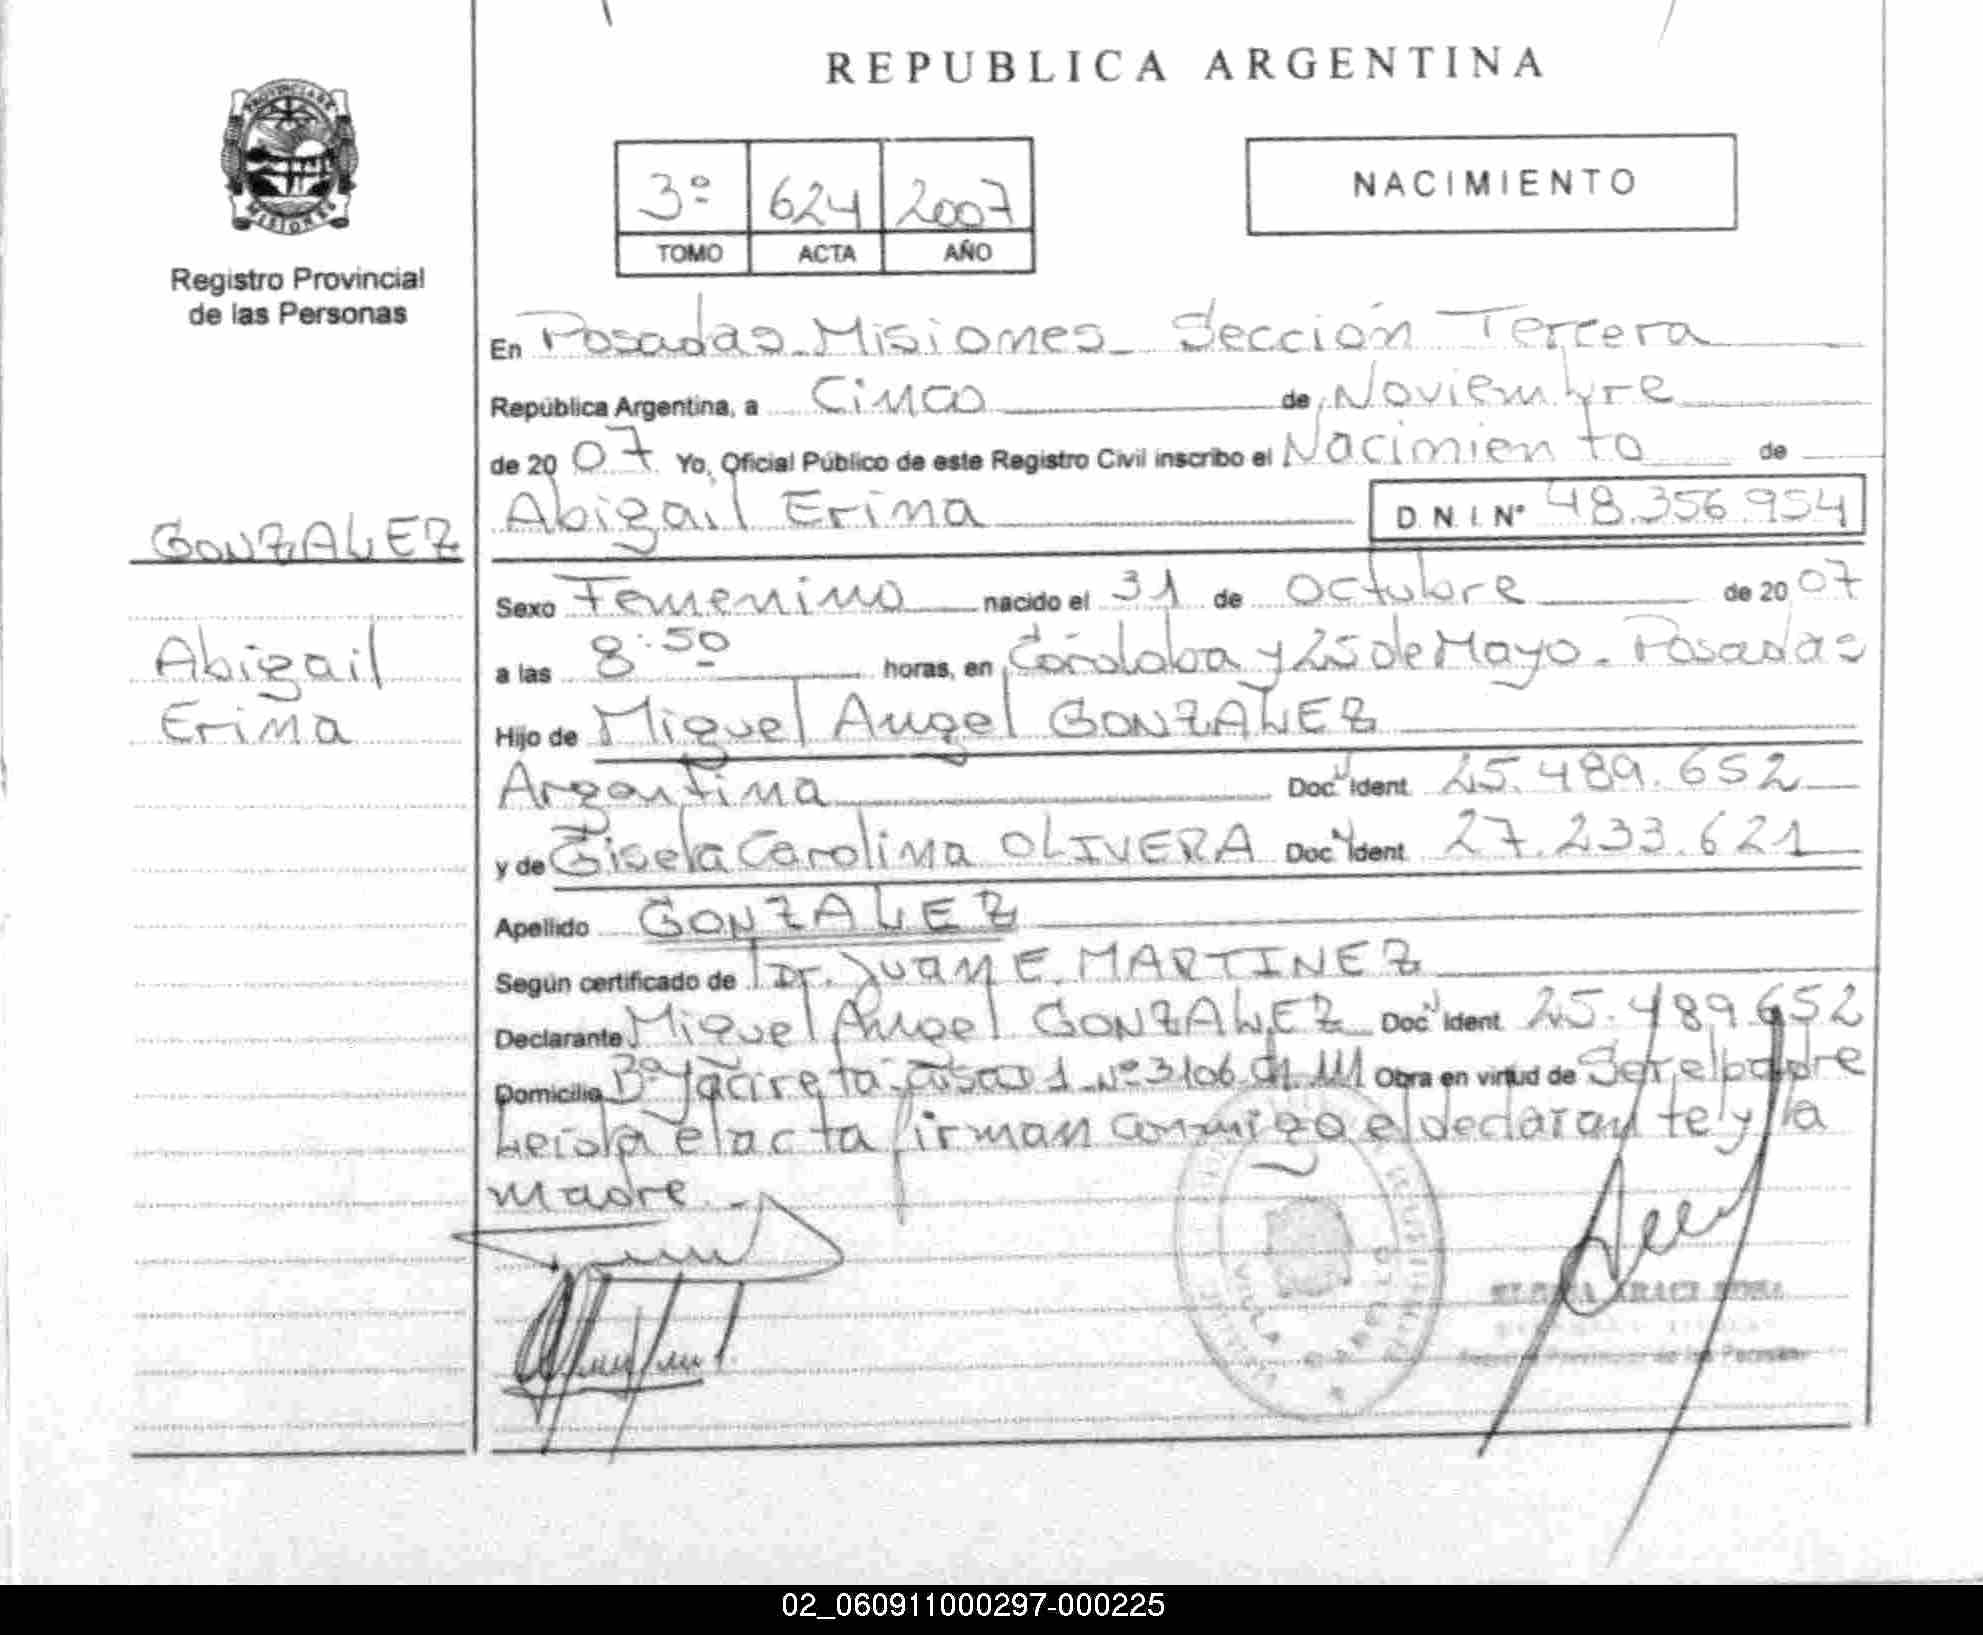 REPUBLICA ARGENTINA
PROVINCIA DE
MISIONES
Registro Provincial
de las Personas
3º 624 2007
TOMO ACTA AÑO
NACIMIENTO
En Posadas - Misiones - Sección Tercera
República Argentina, a Cinco de Noviembre
de 20 07 Yo, Oficial Público de este Registro Civil inscribo el Nacimiento de
GONZALEZ
Abigail Erina D.N.I. Nº 48.356.954
Sexo Femenino nacido el 31 de Octubre de 20 07
Abigail
Erina
a las 8:50 horas, en Córdoba y 25 de Mayo - Posadas
Hijo de Miguel Angel GONZALEZ
Argentina Doc. Ident. 25.489.652
y de Gisela Carolina OLIVERA Doc. Ident. 27.233.621
Apellido GONZALEZ
Según certificado de Dr. Juan E. MARTINEZ
Declarante Miguel Angel GONZALEZ Doc. Ident. 25.489.652
Domicilio Bº Yacireta casa 1 Nº 3106 Obra en virtud de Ser el padre
Leída el acta firman conmigo el declarante y la
madre.-
Registro Provincial de las Personas
02_060911000297-000225